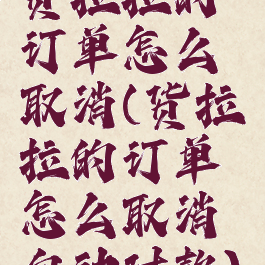 货拉拉的
订单怎么
取消(货拉
拉的订单
怎么取消